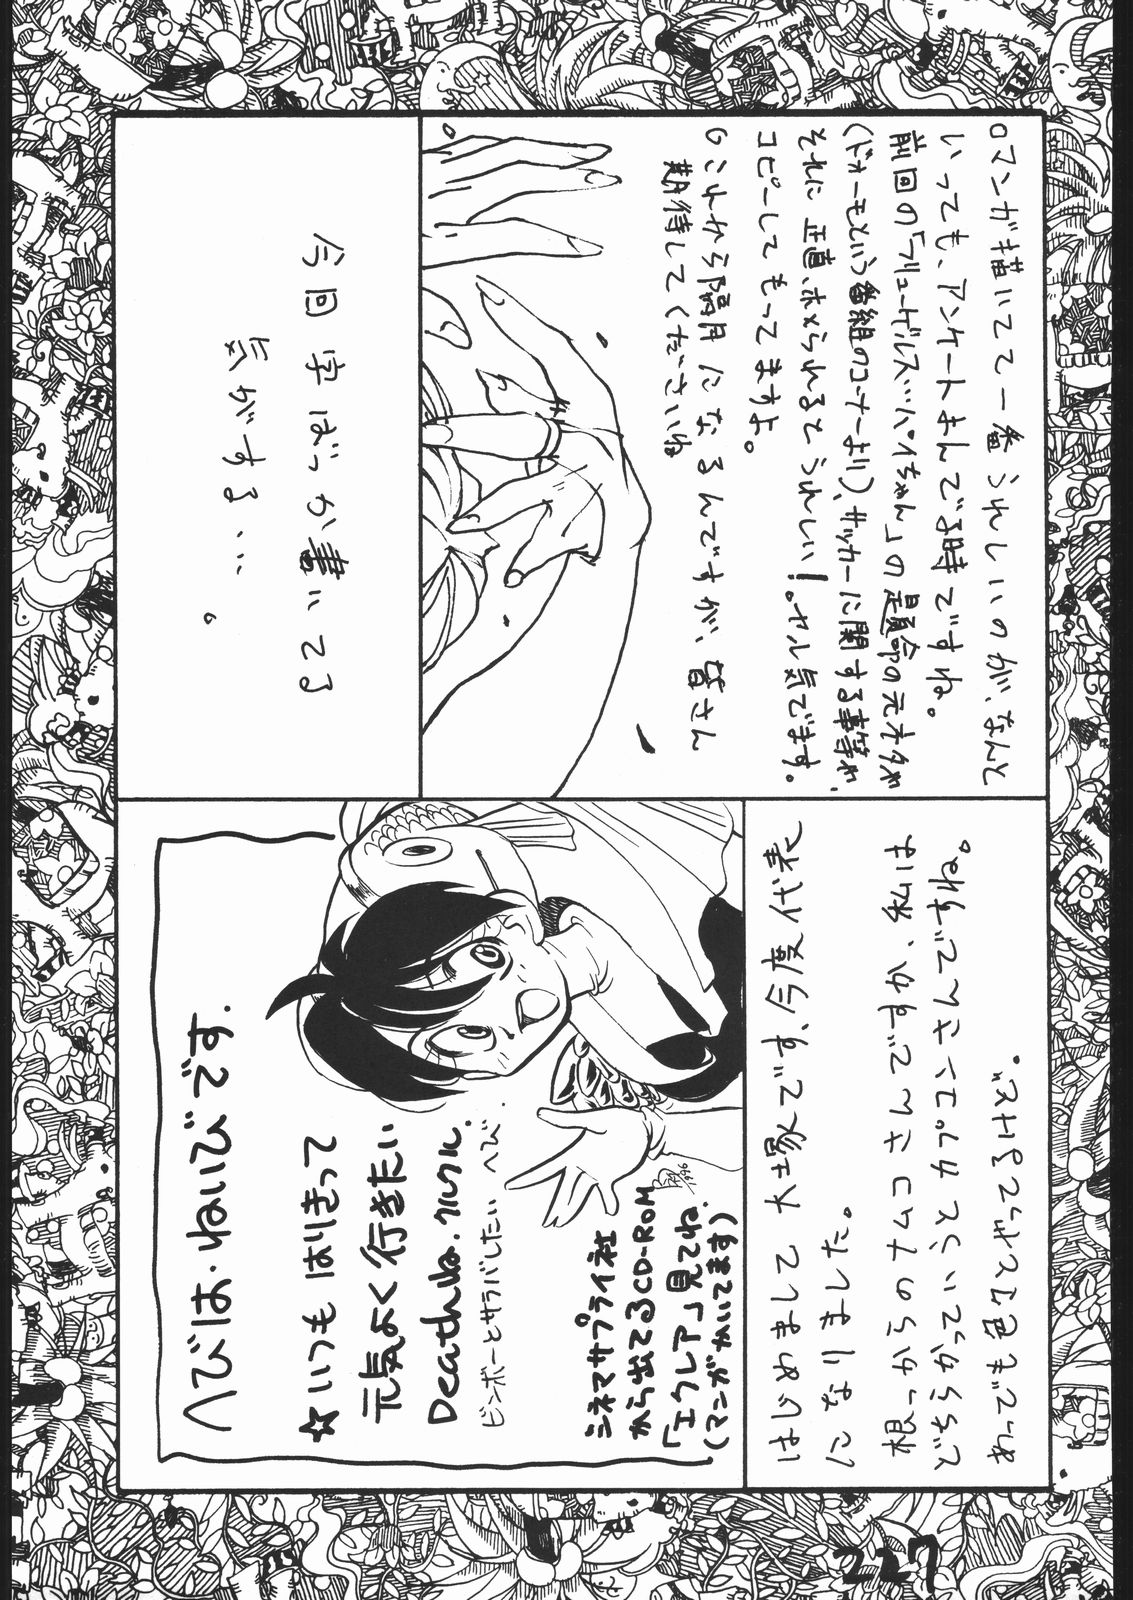 ○マンガを描いてて一番うれしいのが、なんと
いっても、アンケートよんでる時ですね。
前回の「フリューゲルス…パイちゃん」の の元ネタが
(ドォーモという番組のコーナーより)、サッカーに関する事等が、
それに正直、ホメられるとうれしい!。ヤル気でます。
コピーしてもってますよ。
○これから隔月になるんですが、皆さん
期待してくださいね
今回字ばっか書いてる
気がする…。
はじめまして大塚です、今度代表
になりました。
根っからのナムコさんですが、私は
どっちかっていうとカプコンさんですね。
あしでも色々やってますけど。
へびは・ねいびです.
☆いつもはりきって
元気よく行きたい
Deathね.
ビンボーとサラバしたい へび.
シネマサプライ社
から出てるCD-ROM
「エクレア」見てね.
(マンガかいてます)
1996
227